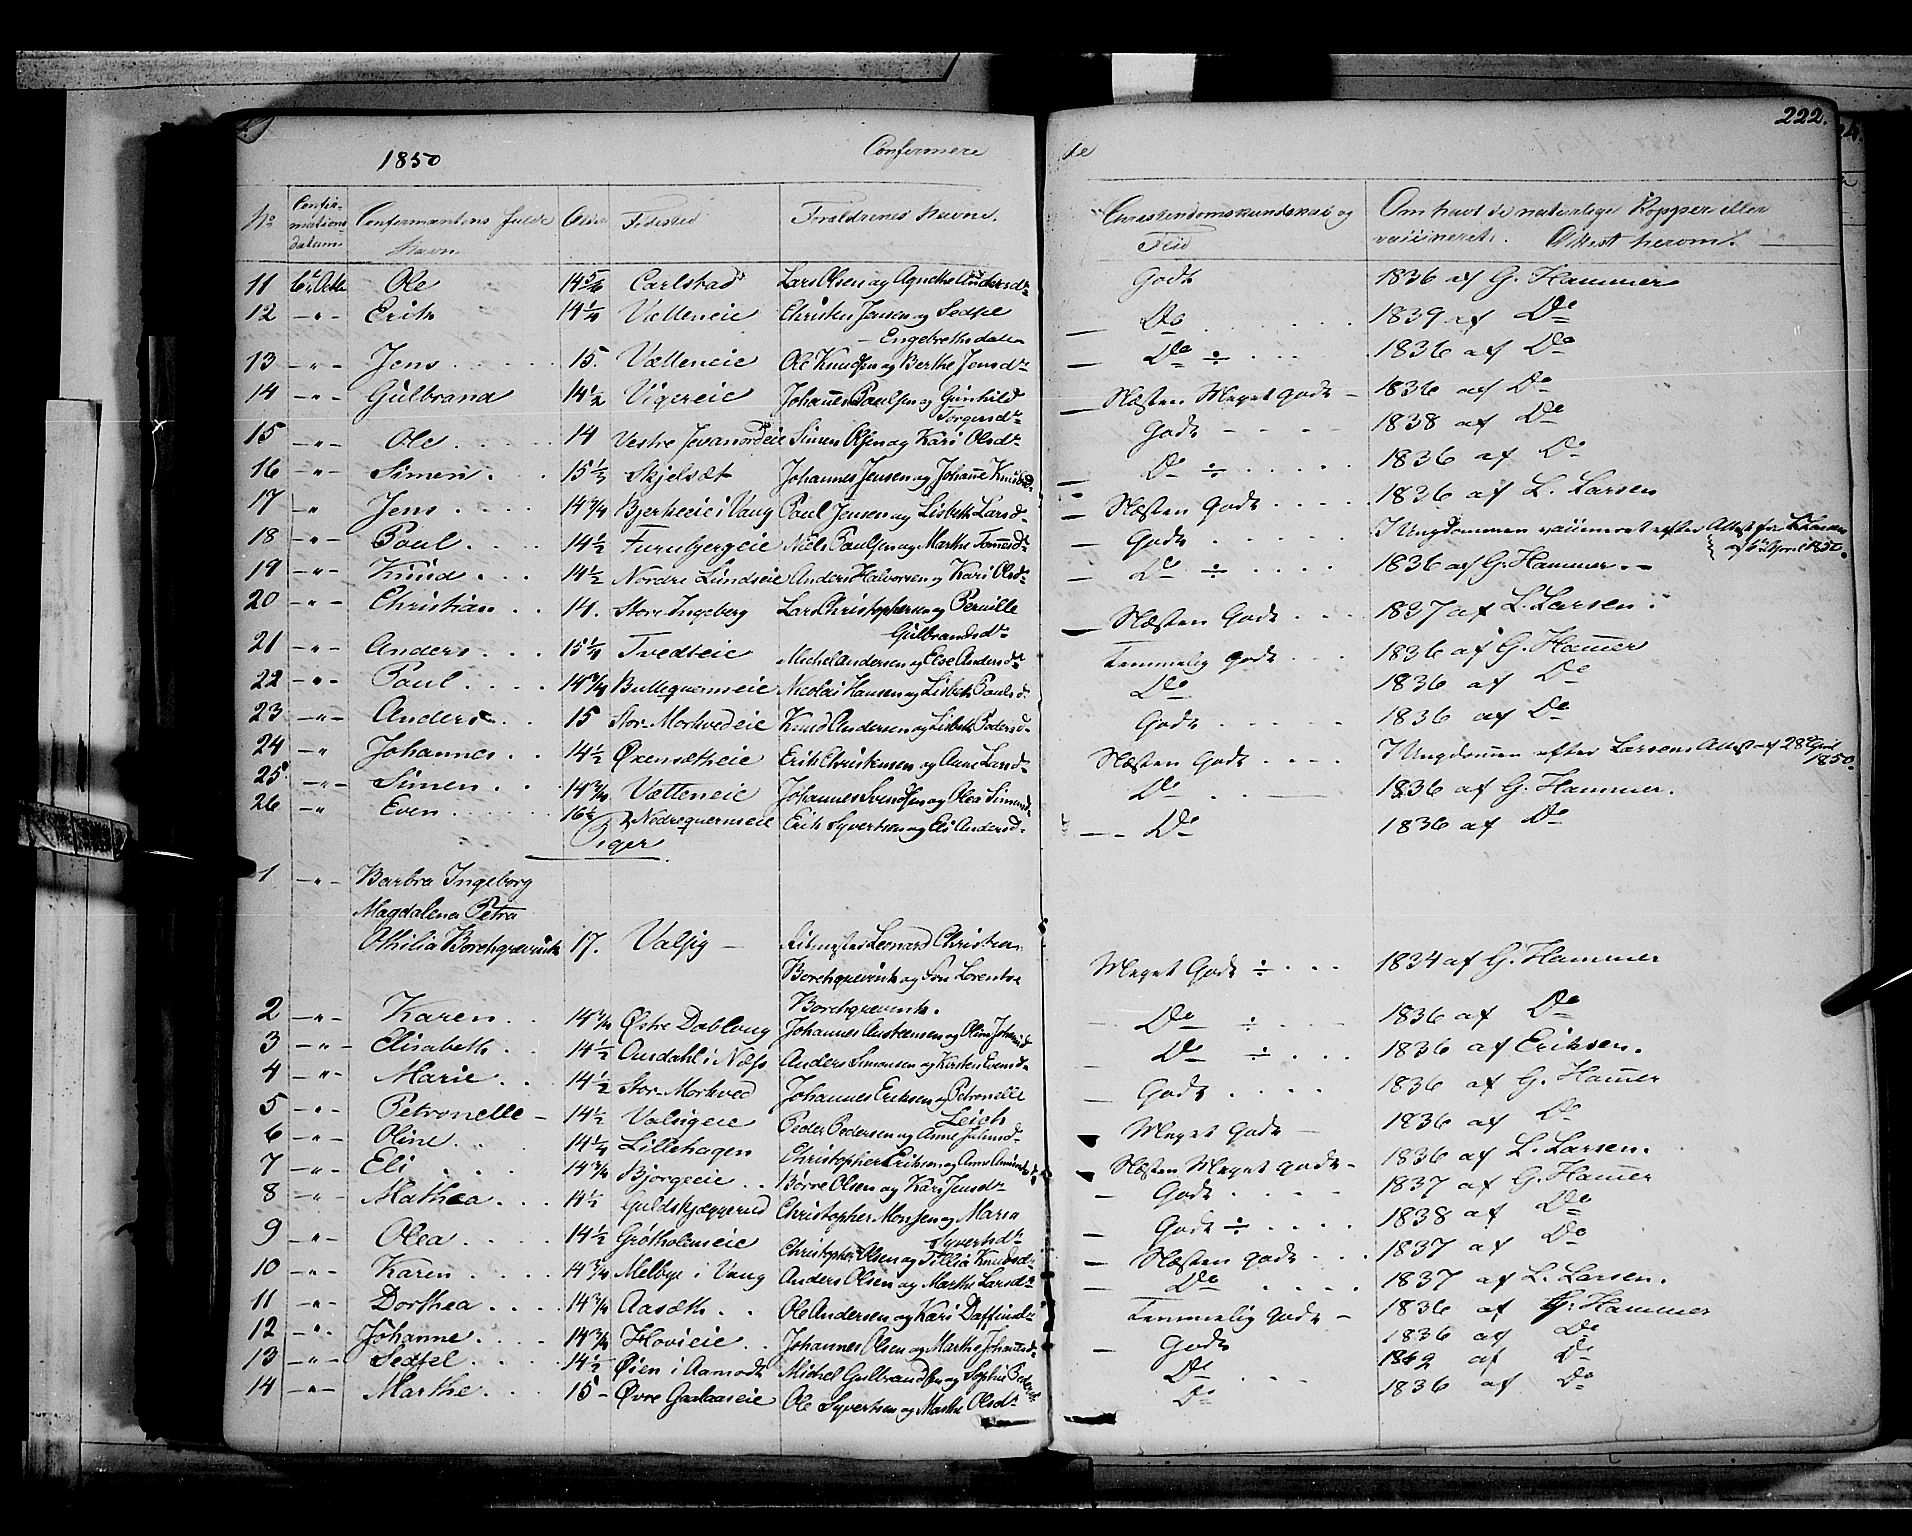 222.
1850 Confirmere de
No Confirmations datum Confirmantens fulde Navn Alder Fødested Forældrenes Navne. Christendomskundskab og Flid Om havt de naturlige Kopper eller vaccineret. Attest herom.
11 6te Octb Ole 14 5/6 Carlstad Lars Olsen og Agnethe Andersdr Godt 1836 af G. Hammer
12 -"- Erik 14 1/4 Vætteneie Christen Jensen og Sedsel Engebrethsdatter Do 1839 af Do
13 -"- Jens 15. Vætteneie Ole Knudsen og Berthe Jensdr Do ÷ 1836 af Do
14 -"- Gulbrand 14 1/2 Vigereie Johannes Paulsen og Gunhild Torgersdr Næsten Meget godt 1836 af Do
15 -"- Ole 14 Vestre Jevanordeie Simen Olsen og Kari Olsdr Godt 1838 af Do
16 -"- Simen 15 1/2 Skjelsæt Johannes Jensen og Johanne Knudsd. Do ÷ 1836 af Do
17 -"- Jens 14 3/4 Bjerkeeie i Vang Paul Jensen og Lisbeth Larsd. Næsten Godt 1836 af L. Larsen
18 -"- Paul 14 1/2 Furubergeie Niels Paulsen og Marthe Tomesd. Godt I Ungdommen vaccineret efter Attest fra L. Larsen af 6te April 1850.
19 -"- Knud 14 1/2 Nordre Lundseie Anders Halvorsen og Kari Olsd. Do ÷ 1836 af G. Hammer.
20 -"- Christian 14. Store Ingeberg Lars Christophersen og Pernille Gulbrandsdr Næsten Godt 1837 af L. Larsen.
21 -"- Anders 15 1/4 Tvedteie Michel Andersen og Else Andersd. Temmelig Godt 1836 af G. Hammer
22 -"- Paul 14 3/4 Bullequerneeie Nicolai Hansen og Lisbeth Paulsd. Do 1836 af Do
23 -"- Anders 15 Stor Morkvedeie Knud Andersen og Lisbeth Pedersd. Godt 1836 af Do
24 -"- Johannes 14 1/2 Øxensætheie Erik Christensen og Anne Larsd. Næsten Godt I Ungdommen efter Larsens Attest af 28de April 1850.
25 -"- Simen 14 3/4 Vætteneie Johannes Svendsen og Olea Simensd. Do 1836 af G. Hammer.
26 -"- Even 16 1/2 Nedrequerneeie Erik Syvertsen og Eli Andersd. Do 1836 af Do
Piger
1 -"- Barbra Ingeborg
Magdalena Petra
Othilia Borchgrevink 17. Valsig Ritmester Leonard Christian Meget Godt ÷ 1834 af G. Hammer
Borchgrevink og Fru Lorentse
Borchgrevink.
2 -"- Karen 14 3/4 Østre Dablaug Johannes Austensen og Oline Johansd. Do ÷ 1836 af Do
3 -"- Elisabeth 14 1/2 Amdahl i Næss Anders Simensen og Kirsten Evensd. Do ÷ 1836 af Eriksen.
4 -"- Marie 14 1/2 Stor Morkved Johannes Eriksen og Petronelle Leich Godt 1836 af G. Hammer
5 -"- Petronelle 14 1/2 Valsigeie Peder Pedersen og Anne Juliusd. Meget Godt 1836 af Do
6 -"- Oline 14 1/4 Lillehagen Christopher Eriksen og Anne Amundsd. Næsten Meget godt 1836 af L. Larsen.
7 -"- Eli 14 3/4 Bjorgeeie Børre Olsen og Kari Jensdr Godt 1837 af G. Hammer
8 -"- Mathea 14 1/2 Guldskjæggerud Christopher Monsen og Maria Syvertsdr Godt ÷ 1838 af Do
9 -"- Olea 14 1/2 Grøtholmseie Christopher Olsen og Tillia Knudsdr Næsten godt 1837 af Do
10 -"- Karen 14 3/4 Melbye i Vang Anders Olsen og Marthe Larsdr Do 1837 af L. Larsen.
11 -"- Dorthea 14 3/4 Aasæth Ole Andersen og Kari Daffinsdr Temmelig Godt 1836 af G. Hammer
12 -"- Johanne 14 3/4 Hovieie Johannes Olsen og Marthe Johannesd. Godt 1836 af Do
13 -"- Sedsel 14 1/2 Øien i Aamodt Michel Gulbrandsen og Sophie Pedersdr Do 1842 af Do
14 -"- Marthe 15 Øvre Gaalaaseie Ole Syvertsen og Marthe Olsdr Do 1836 af Do